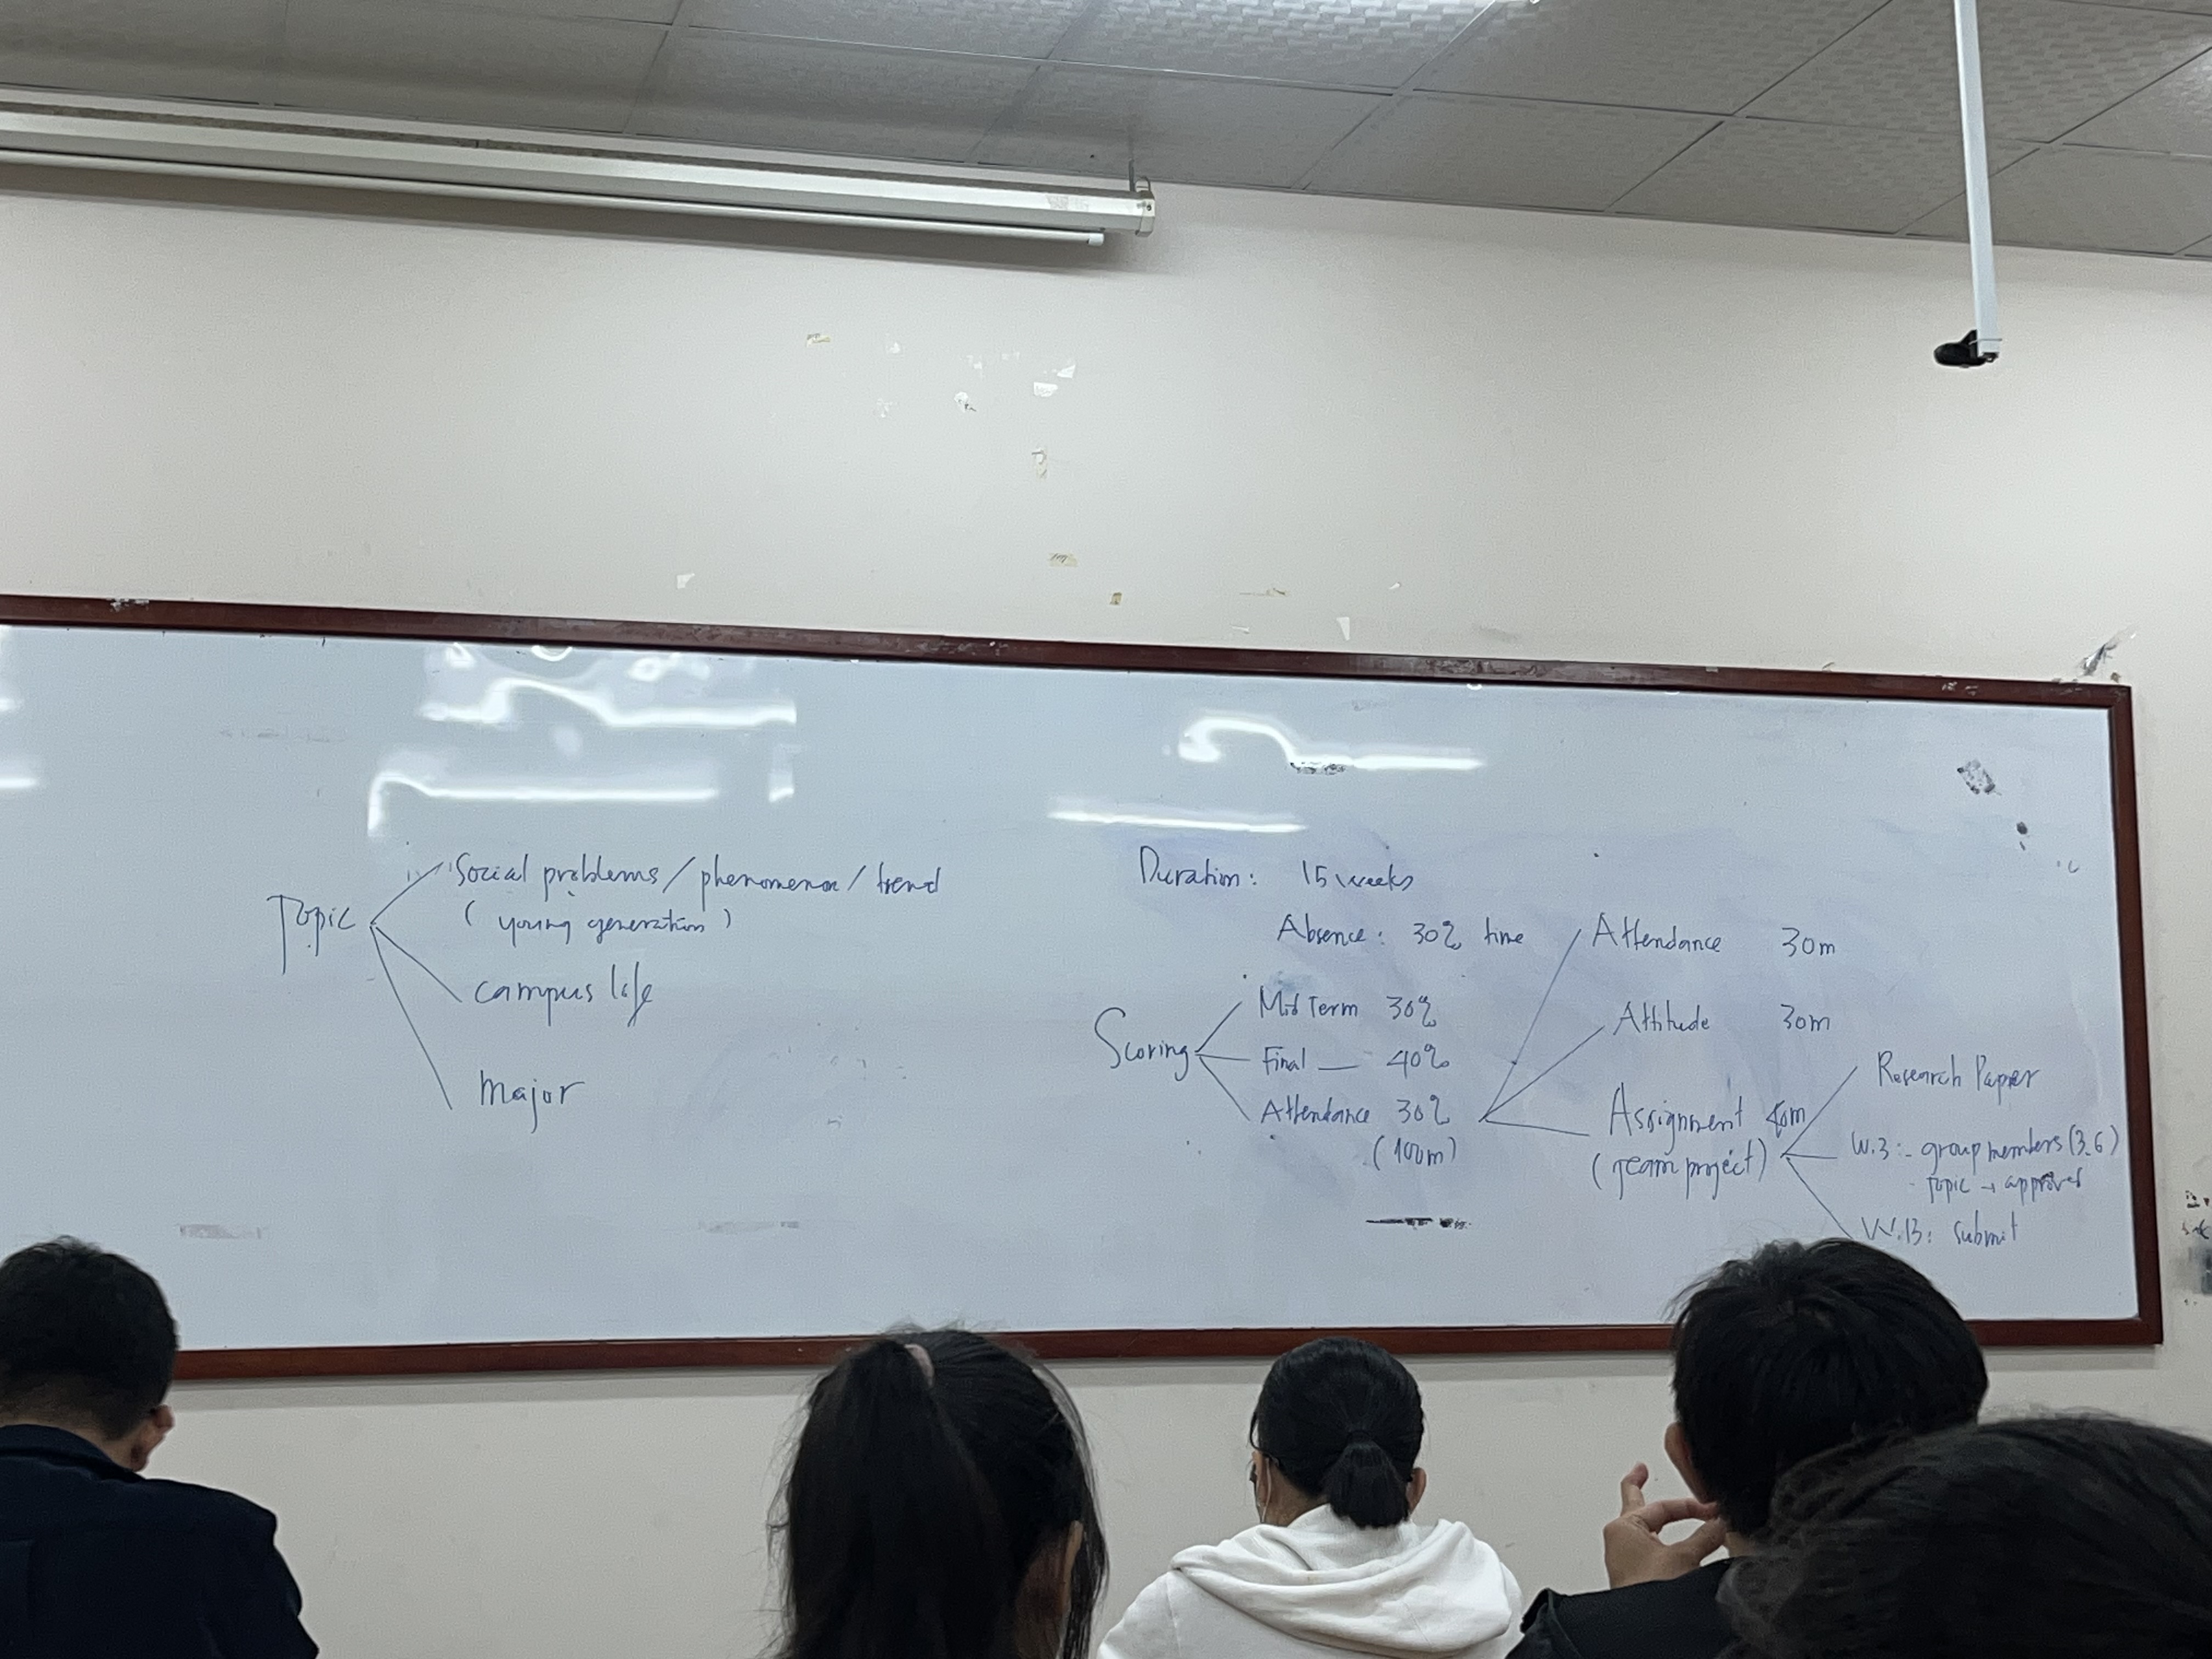 Topic
Social problems / phenomenon / trend
( young generation )
campus life
Major
Duration: 15 weeks
Absence: 30% time
Scoring
Mid Term 30%
Final — 40%
Attendance 30%
(100m)
Attendance 30m
Attitude 30m
Assignment 40m
(Team project)
Research Paper
W.3: - group members (3.6)
- Topic → approved
W.13: submit